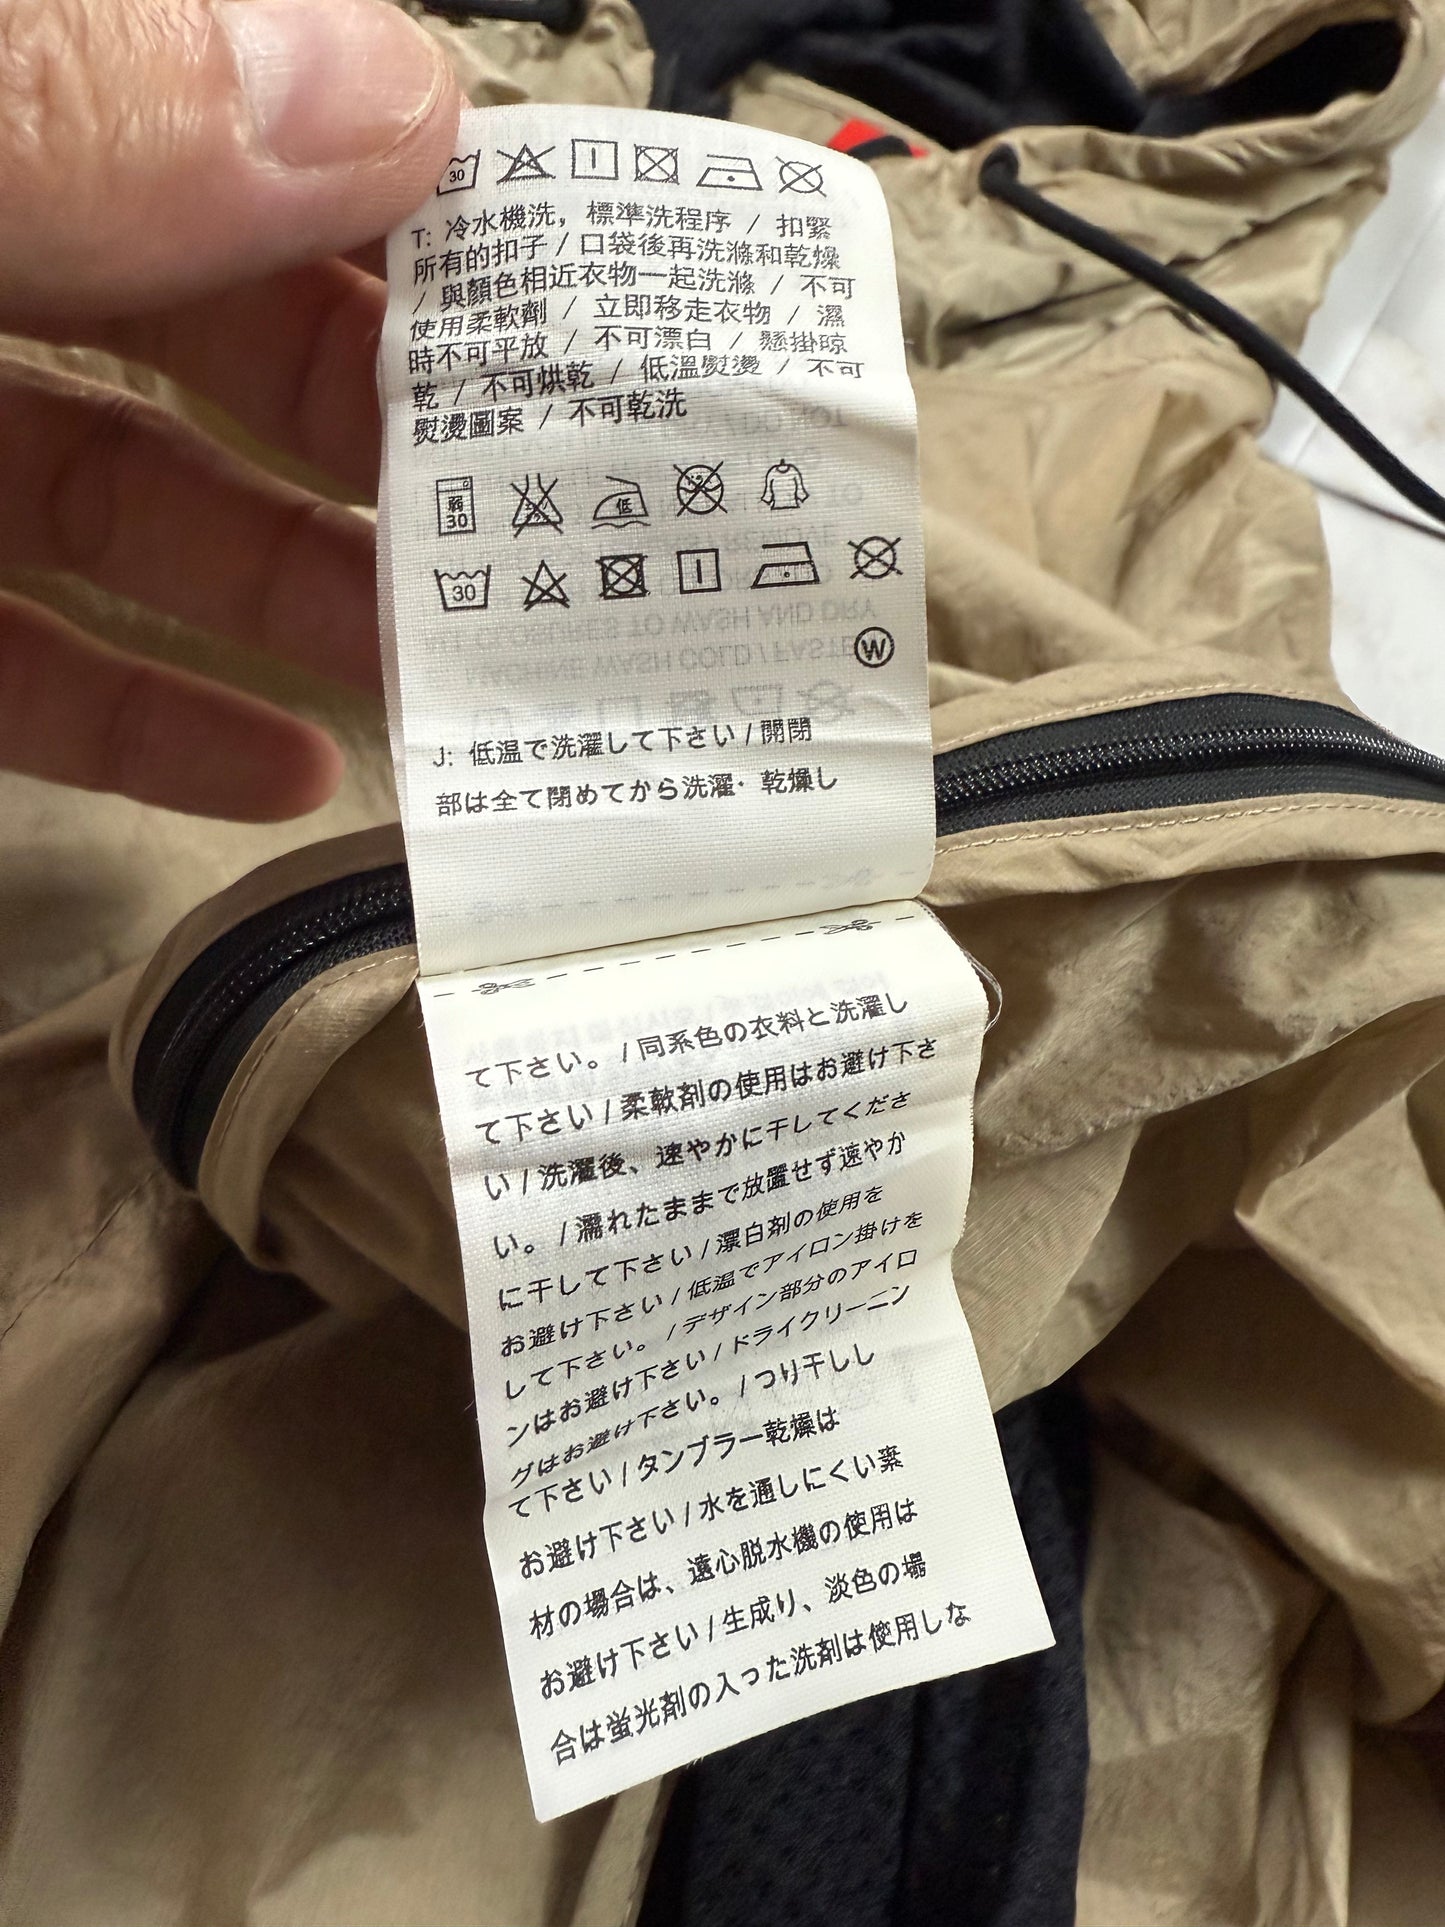 30
T: 冷水機洗，標準洗程序 / 扣緊
所有的扣子 / 口袋後再洗滌和乾燥
/ 與顏色相近衣物一起洗滌 / 不可
使用柔軟劑 / 立即移走衣物 / 濕
時不可平放 / 不可漂白 / 懸掛晾
乾 / 不可烘乾 / 低溫熨燙 / 不可
熨燙圖案 / 不可乾洗
弱 30 低
30
W
J: 低温で洗濯して下さい / 開閉
部は全て閉めてから洗濯・乾燥し
て下さい。/ 同系色の衣料と洗濯し
て下さい / 柔軟剤の使用はお避け下さ
い / 洗濯後、速やかに干してくださ
い。/ 濡れたままで放置せず速やか
に干して下さい / 漂白剤の使用を
お避け下さい / 低温でアイロン掛けを
して下さい。/ デザイン部分のアイロ
ンはお避け下さい / ドライクリーニン
グはお避け下さい。/ つり干しし
て下さい / タンブラー乾燥は
お避け下さい / 水を通しにくい素
材の場合は、遠心脱水機の使用は
お避け下さい / 生成り、淡色の場
合は蛍光剤の入った洗剤は使用しな